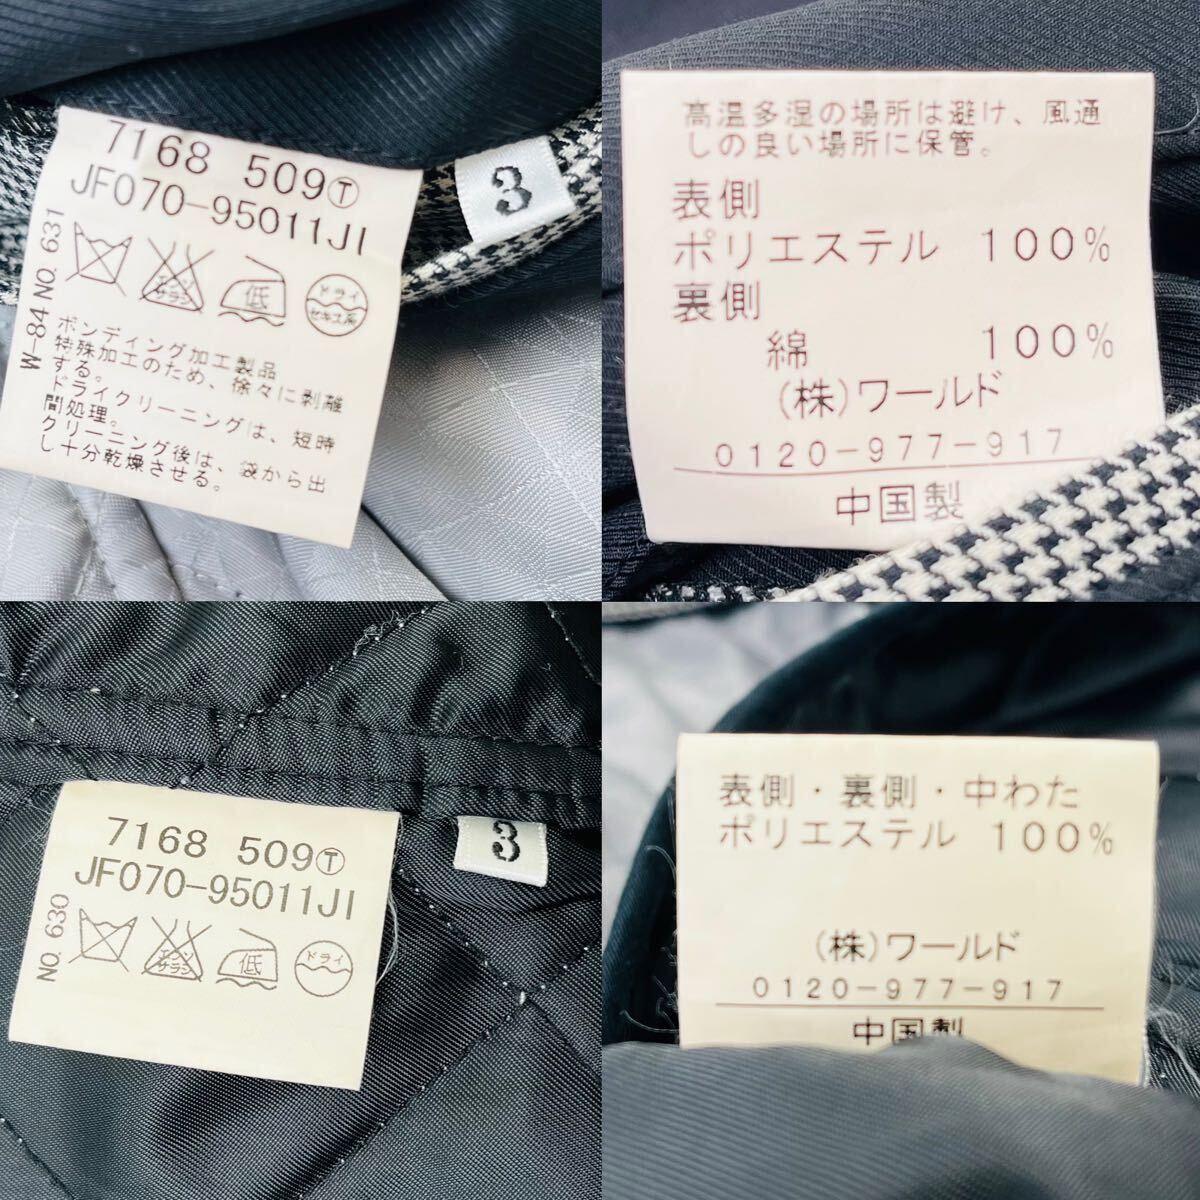 7168 509Ⓣ
JF070-95011JI
エンソ
サラシ
低
ドライ
セキユ系
W-84 NO. 631
ボンディング加工製品
特殊加工のため、徐々に剥離
する。
ドライクリーニングは、短時
間処理。
クリーニング後は、袋から出
し十分乾燥させる。
3
高温多湿の場所は避け、風通
しの良い場所に保管。
表側
ポリエステル 100%
裏側
綿 100%
(株)ワールド
0120-977-917
中国製
7168 509Ⓣ
JF070-95011JI
NO. 630
エンソ
サラシ
低
ドライ
3
表側・裏側・中わた
ポリエステル 100%
(株)ワールド
0120-977-917
中国製